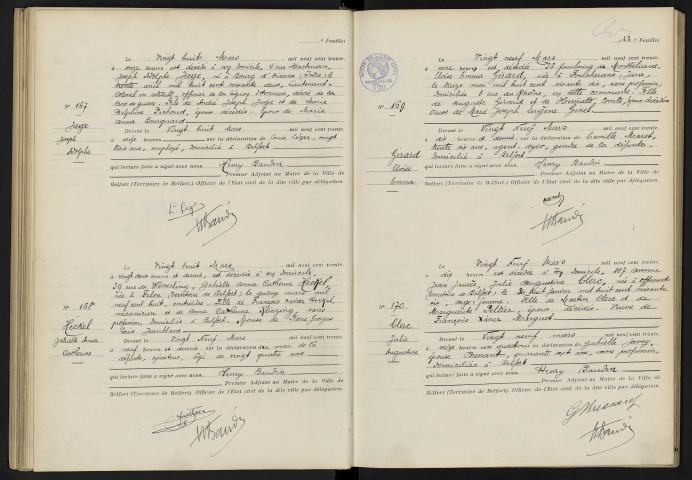 Feuillet
Le Vingt huit Mars mil neuf cent trente
à onze heures est décédé à son domicile, 4 rue
Joseph Adolphe Juge, né à Bourg d'Oisans, Isère, le
trente mil huit cent soixante deux, lieutenant-
Colonel en retraite, officier de la Légion d'Honneur, décoré de la
Croix de guerre. Fils de André Joseph Juge et de Marie
Delphine, époux décédés. Époux de Marie
Anna
N° 167
Juge
Joseph
Adolphe
Devant le Vingt huit Mars mil neuf cent trente
à heures sur la déclaration de Louis Léger, vingt
trois ans, employé, domicilié à Belfort
qui lecture faite a signé avec nous. Henry Baudin
Premier Adjoint au Maire de la Ville de
Belfort (Territoire de Belfort) Officier de l'Etat civil de la dite ville par délégation.
Le Vingt huit Mars mil neuf cent trente
à vingt deux heures et demie, est décédée à son domicile,
39 rue de, Gabrielle Anna Catherine Heckel
née à, Territoire de Belfort, le quinze mars mil
neuf cent huit, ouvrière. Fille de François Xavier Heckel,
mécanicien et de Anna Catherine, sans
profession, domiciliés à Belfort. Épouse de Pierre Georges
Louis
N° 168
Heckel
Gabrielle Anna
Catherine
Devant le Vingt Neuf Mars mil neuf cent trente
à neuf heures et demie sur la déclaration du mari de la
défunte, âgé de vingt quatre ans
qui lecture faite a signé avec nous. Henry Baudin
Premier Adjoint au Maire de la Ville de
Belfort (Territoire de Belfort) Officier de l'Etat civil de la dite ville par délégation.
43 Feuillet
Le Vingt neuf Mars mil neuf cent trente
à onze heures est décédée, 36 faubourg de Montbéliard,
Eloïse Emma Girard, née à, Jura,
le treize mai mil huit cent soixante dix, sans profession,
domiciliée 5 rue du Rhône, en cette commune. Fille
de Auguste Girard et de Henriette Comte, époux décédés
Veuve de Marie Joseph Eugène Genet
N° 169
Girard
Eloïse
Emma
Devant le Vingt Neuf Mars mil neuf cent trente
à dix heures et demie sur la déclaration de Camille Maret,
trente six ans, agent-voyer, gendre de la défunte
domicilié à Belfort
qui lecture faite a signé avec nous. Henry Baudin
Premier Adjoint au Maire de la Ville de
Belfort (Territoire de Belfort) Officier de l'Etat civil de la dite ville par délégation.
Le Vingt Neuf Mars mil neuf cent trente
à dix heures est décédée à son domicile, 107 avenue
Jean Jaurès Julie Augustine Clerc, née à Offemont
Territoire de Belfort, le huit janvier mil huit cent soixante
six, sage-femme. Fille de Martin Clerc et de
Marguerite Peltier, époux décédés. Veuve de
François Xavier Marguet
N° 170
Clerc
Julie
Augustine
Devant le Vingt neuf mars mil neuf cent trente
à seize heures sur la déclaration de Gabrielle
épouse, quarante sept ans, sans profession,
domiciliée à Belfort
qui lecture faite a signé avec nous. Henry Baudin
Premier Adjoint au Maire de la Ville de
Belfort (Territoire de Belfort) Officier de l'Etat civil de la dite ville par délégation.